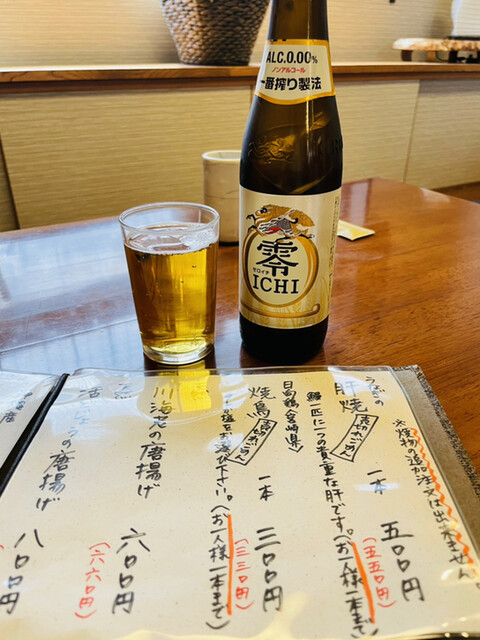 ALC.0.00%
ノンアルコール
一番搾り製法
零
ゼロイチ
ICHI
※焼物の追加注文は出来ません。
うなぎの
肝焼
売切れごめん
一本
五〇〇円
(五五〇円)
鰻一匹に一つの貴重な肝です。(お一人様一本まで)
日向鶏(宮崎県)
焼鳥
売切れごめん
一本
三〇〇円
(三三〇円)
塩をお選び下さい。(お一人様一本まで)
川海老の唐揚げ
六〇〇円
(六六〇円)
の唐揚げ
八〇〇円